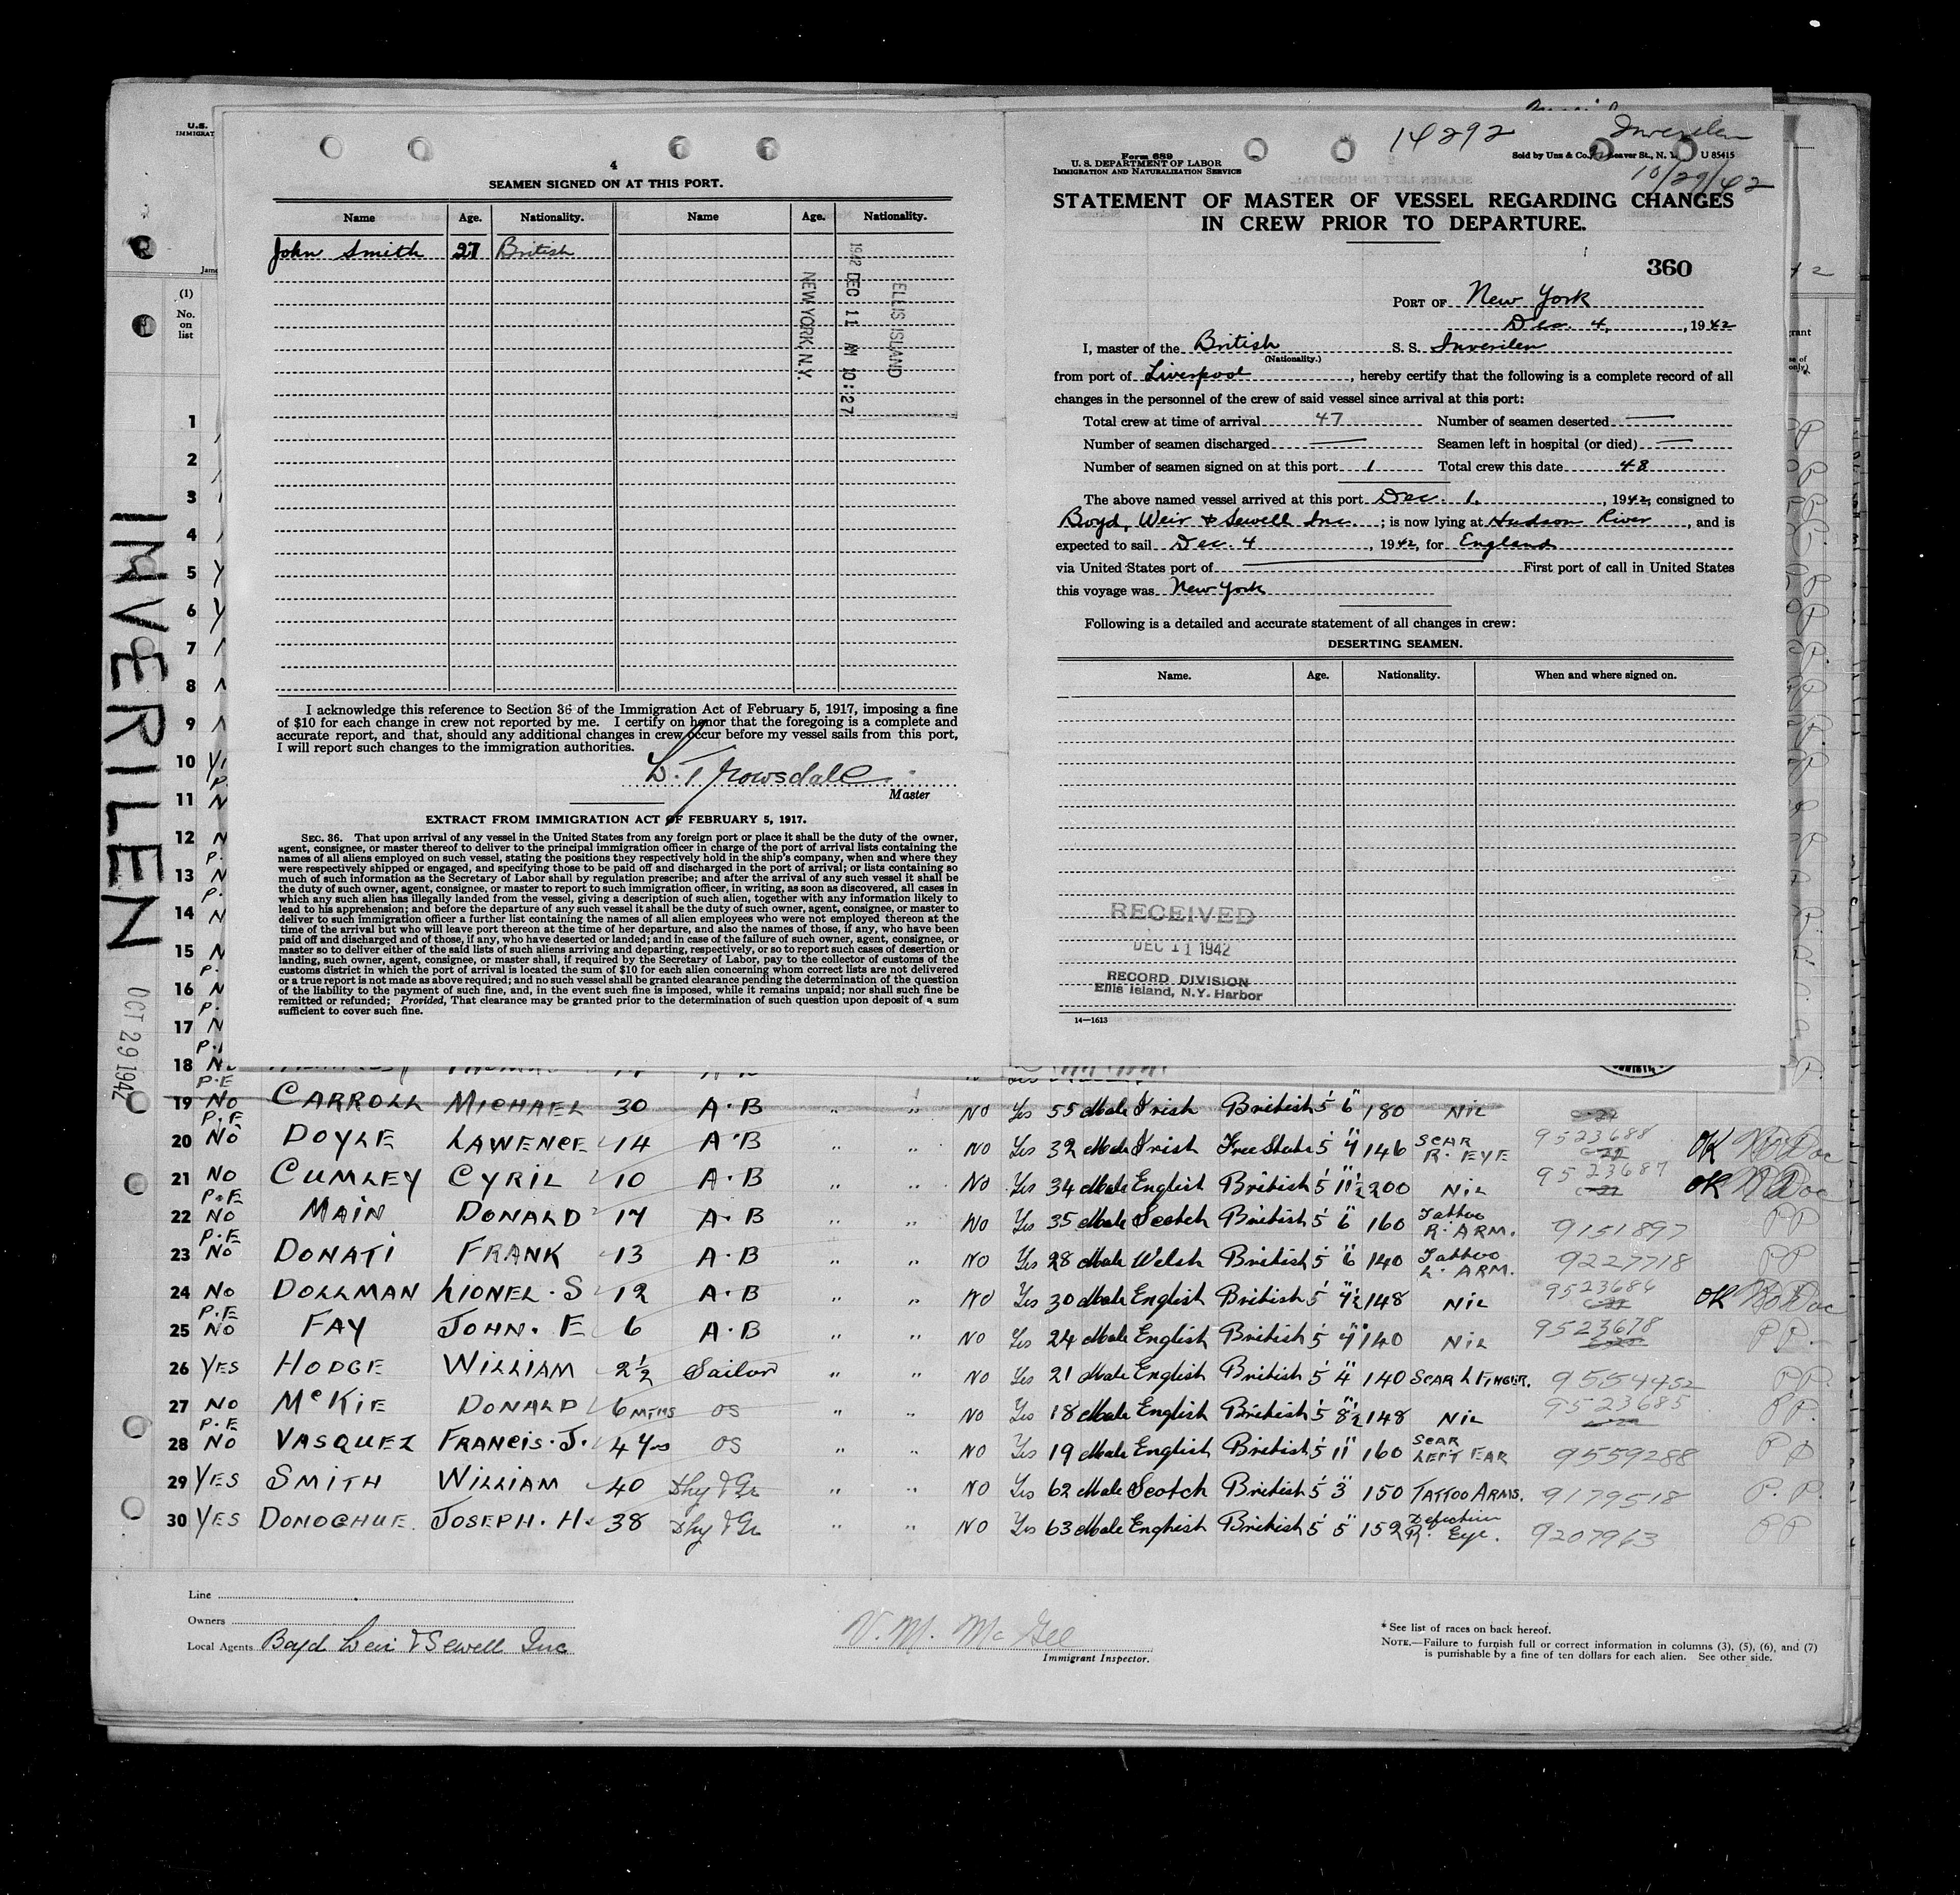 4
SEAMEN SIGNED ON AT THIS PORT.
Name Age. Nationality. Name Age. Nationality.
John Smith 27 British
ELLIS ISLAND
1942 DEC 11 AM 10:27
NEW YORK, N.Y.
I acknowledge this reference to Section 36 of the Immigration Act of February 5, 1917, imposing a fine
of $10 for each change in crew not reported by me. I certify on honor that the foregoing is a complete and
accurate report, and that, should any additional changes in crew occur before my vessel sails from this port,
I will report such changes to the immigration authorities.
Master
EXTRACT FROM IMMIGRATION ACT OF FEBRUARY 5, 1917.
SEC. 36. That upon arrival of any vessel in the United States from any foreign port or place it shall be the duty of the owner,
agent, consignee, or master thereof to deliver to the principal immigration officer in charge of the port of arrival lists containing the
names of all aliens employed on such vessel, stating the positions they respectively hold in the ship's company, when and where they
were respectively shipped or engaged, and specifying those to be paid off and discharged in the port of arrival; or lists containing so
much of such information as the Secretary of Labor shall by regulation prescribe; and after the arrival of any such vessel it shall be
the duty of such owner, agent, consignee, or master to report to such immigration officer, in writing, as soon as discovered, all cases in
which any such alien has illegally landed from the vessel, giving a description of such alien, together with any information likely to
lead to his apprehension; and before the departure of any such vessel it shall be the duty of such owner, agent, consignee, or master to
deliver to such immigration officer a further list containing the names of all alien employees who were not employed thereon at the
time of the arrival but who will leave port thereon at the time of her departure, and also the names of those, if any, who have been
paid off and discharged and of those, if any, who have deserted or landed; and in case of the failure of such owner, agent, consignee, or
master so to deliver either of the said lists of such aliens arriving and departing, respectively, or so to report such cases of desertion or
landing, such owner, agent, consignee, or master shall, if required by the Secretary of Labor, pay to the collector of customs of the
customs district in which the port of arrival is located the sum of $10 for each alien concerning whom correct lists are not delivered
or a true report is not made as above required; and no such vessel shall be granted clearance pending the determination of the question
of the liability to the payment of such fine, and, in the event such fine is imposed, while it remains unpaid; nor shall such fine be
remitted or refunded; Provided, That clearance may be granted prior to the determination of such question upon deposit of a sum
sufficient to cover such fine.
14292 Inverilen
Form 689
U. S. DEPARTMENT OF LABOR
IMMIGRATION AND NATURALIZATION SERVICE
Sold by Unz & Co., Beaver St., N. Y. U 85415
10/29/42
STATEMENT OF MASTER OF VESSEL REGARDING CHANGES
IN CREW PRIOR TO DEPARTURE.
360
PORT OF New York
Dec. 4, 1942
I, master of the British S. S. Inverilen
(Nationality.)
from port of Liverpool, hereby certify that the following is a complete record of all
changes in the personnel of the crew of said vessel since arrival at this port:
Total crew at time of arrival 47 Number of seamen deserted —
Number of seamen discharged — Seamen left in hospital (or died) —
Number of seamen signed on at this port 1 Total crew this date 48
The above named vessel arrived at this port Dec. 1, 1942, consigned to
Boyd, Weir & Sewell Inc. ; is now lying at Hudson River, and is
expected to sail Dec. 4, 1942, for England
via United States port of — First port of call in United States
this voyage was New York
Following is a detailed and accurate statement of all changes in crew:
DESERTING SEAMEN.
Name. Age. Nationality. When and where signed on.
RECEIVED
DEC 11 1942
RECORD DIVISION
Ellis Island, N.Y. Harbor
14—1613
INVERILEN
OCT 29 1942
(1)
No.
on
list
1
2
3
4
5
6
7
8
9
10
11
12
13
14
15
16
17
18
P.E
19 NO CARROLL MICHAEL 30 A.B " " NO Yes 55 Male Irish British 5' 6" 180 Nil
P.E
20 NO DOYLE LAWENCE 14 A.B " " NO Yes 32 Male Irish Free State 5' 4" 146 SCAR R. EYE 9523688 OK No Doc
21 NO CUMLEY CYRIL 10 A.B " " NO Yes 34 Male English British 5' 11½" 200 Nil 9523687 OK No Doc
P.E
22 NO MAIN DONALD 17 A.B " " NO Yes 35 Male Scotch British 5' 6" 160 Tattoo R. ARM. 9151897 PP
P.E
23 NO DONATI FRANK 13 A.B " " NO Yes 28 Male Welsh British 5' 6" 140 Tattoo L. ARM. 9227718 PP
24 NO DOLLMAN LIONEL. S 12 A.B " " NO Yes 30 Male English British 5' 4½" 148 Nil 9523686 OK No Doc
P.E
25 NO FAY JOHN. E 6 A.B " " NO Yes 24 Male English British 5' 4" 140 Nil 9523678 PP
26 YES HODGE WILLIAM 2½ Sailor " " NO Yes 21 Male English British 5' 4" 140 SCAR L FINGER. 9554452 PP.
27 NO McKIE DONALD 6 MTHS OS " " NO Yes 18 Male English British 5' 8½" 148 Nil 9523685 PP.
P.E
28 NO VASQUEZ FRANCIS. J. 4 Yrs OS " " NO Yes 19 Male English British 5' 11" 160 SCAR LEFT EAR 9559288 PP
29 YES SMITH WILLIAM 40 " " NO Yes 62 Male Scotch British 5' 3" 150 TATTOO ARMS. 9179518 P. P.
30 YES DONOGHUE. JOSEPH. H. 38 " " NO Yes 63 Male English British 5' 5" 152 Defective R. Eye. 9207963 PP
Line
Owners
Local Agents Boyd Weir & Sewell Inc
V. M. McGee
Immigrant Inspector.
* See list of races on back hereof.
NOTE.—Failure to furnish full or correct information in columns (3), (5), (6), and (7)
is punishable by a fine of ten dollars for each alien. See other side.